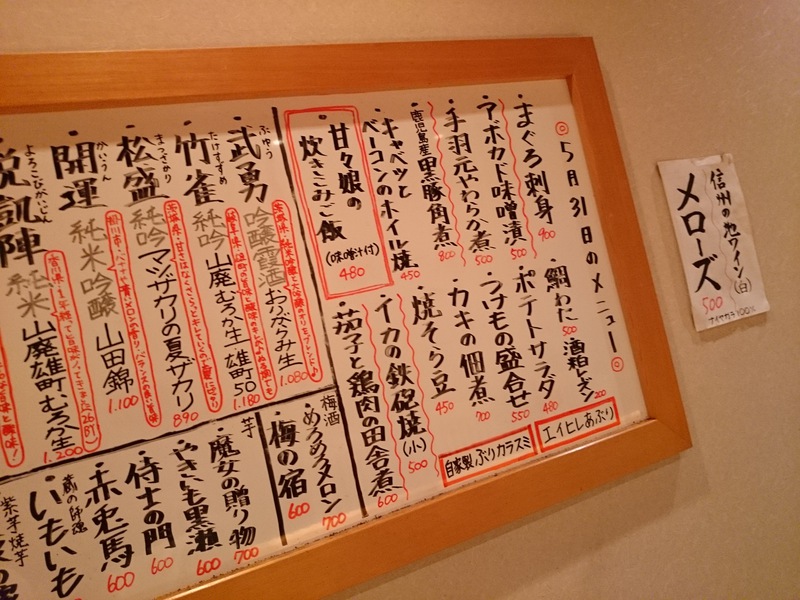 ◎5月31日のメニュー◎
まぐろ刺身 900
鯛わた 500
酒粕レーズン 200
アボカド味噌漬 500
ポテトサラダ 480
手羽元やわらか煮 500
つけもの盛合せ 550
鹿児島産黒豚角煮 800
カキの佃煮 700
キャベツと
ベーコンのホイル焼 450
焼そら豆 450
エイヒレあぶり
自家製ぶりカラスミ
甘々娘の
炊きこみご飯
(味噌汁付)
480
イカの鉄砲焼(小) 500
茄子と鶏肉の田舎煮 600
武勇 ぶゆう
吟醸霞酒 おりがらみ生
1.080
竹雀 たけすずめ
純吟 山廃 むろか生 雄町50
1.180
松盛 まつざかり
純吟 マツザカリの夏ザカリ
890
開運 かいうん
純米吟醸 山田錦
1.100
悦凱陣 よろこびがいじん
純米 山廃雄町むろか生
1.200
梅酒
めろめろメロン 700
梅の宿 600
芋
魔女の贈り物 700
やきいも黒瀬 600
侍士の門 600
赤兎馬 600
蔵の師魂
いもいも
紫芋焼芋
信州の地ワイン(白)
メローズ
500
ナイヤガラ100%